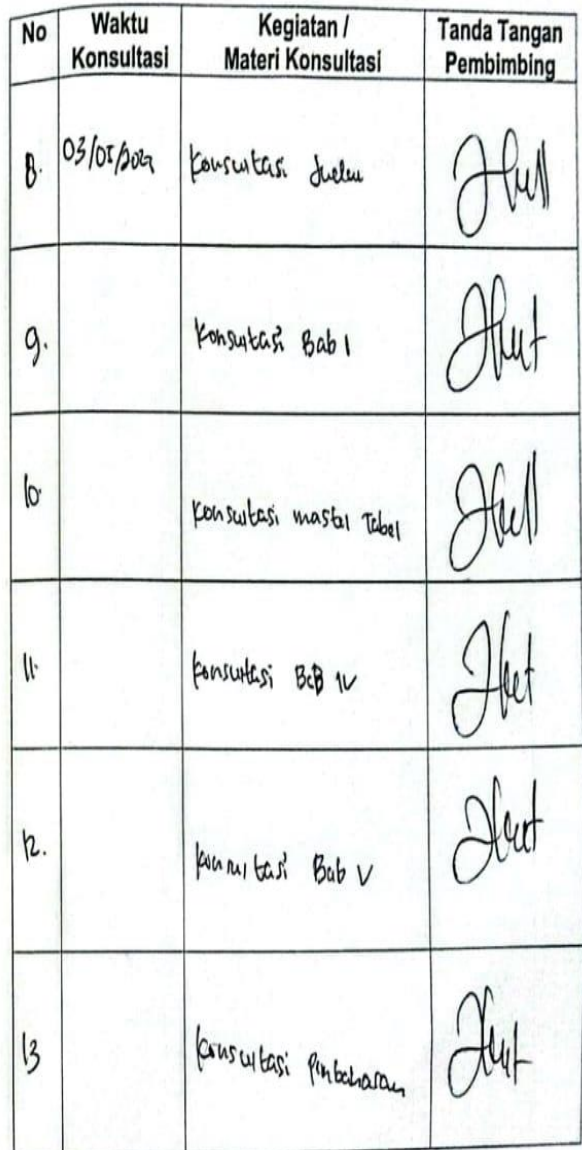 No Waktu Konsultasi Kegiatan / Materi Konsultasi Tanda Tangan Pembimbing
8. 03/05/2022 Konsultasi
9. Konsultasi Bab I
10. Konsultasi master Tabel
11. Konsultasi BaB IV
12. Konsultasi Bab V
13 Konsultasi Pembahasan